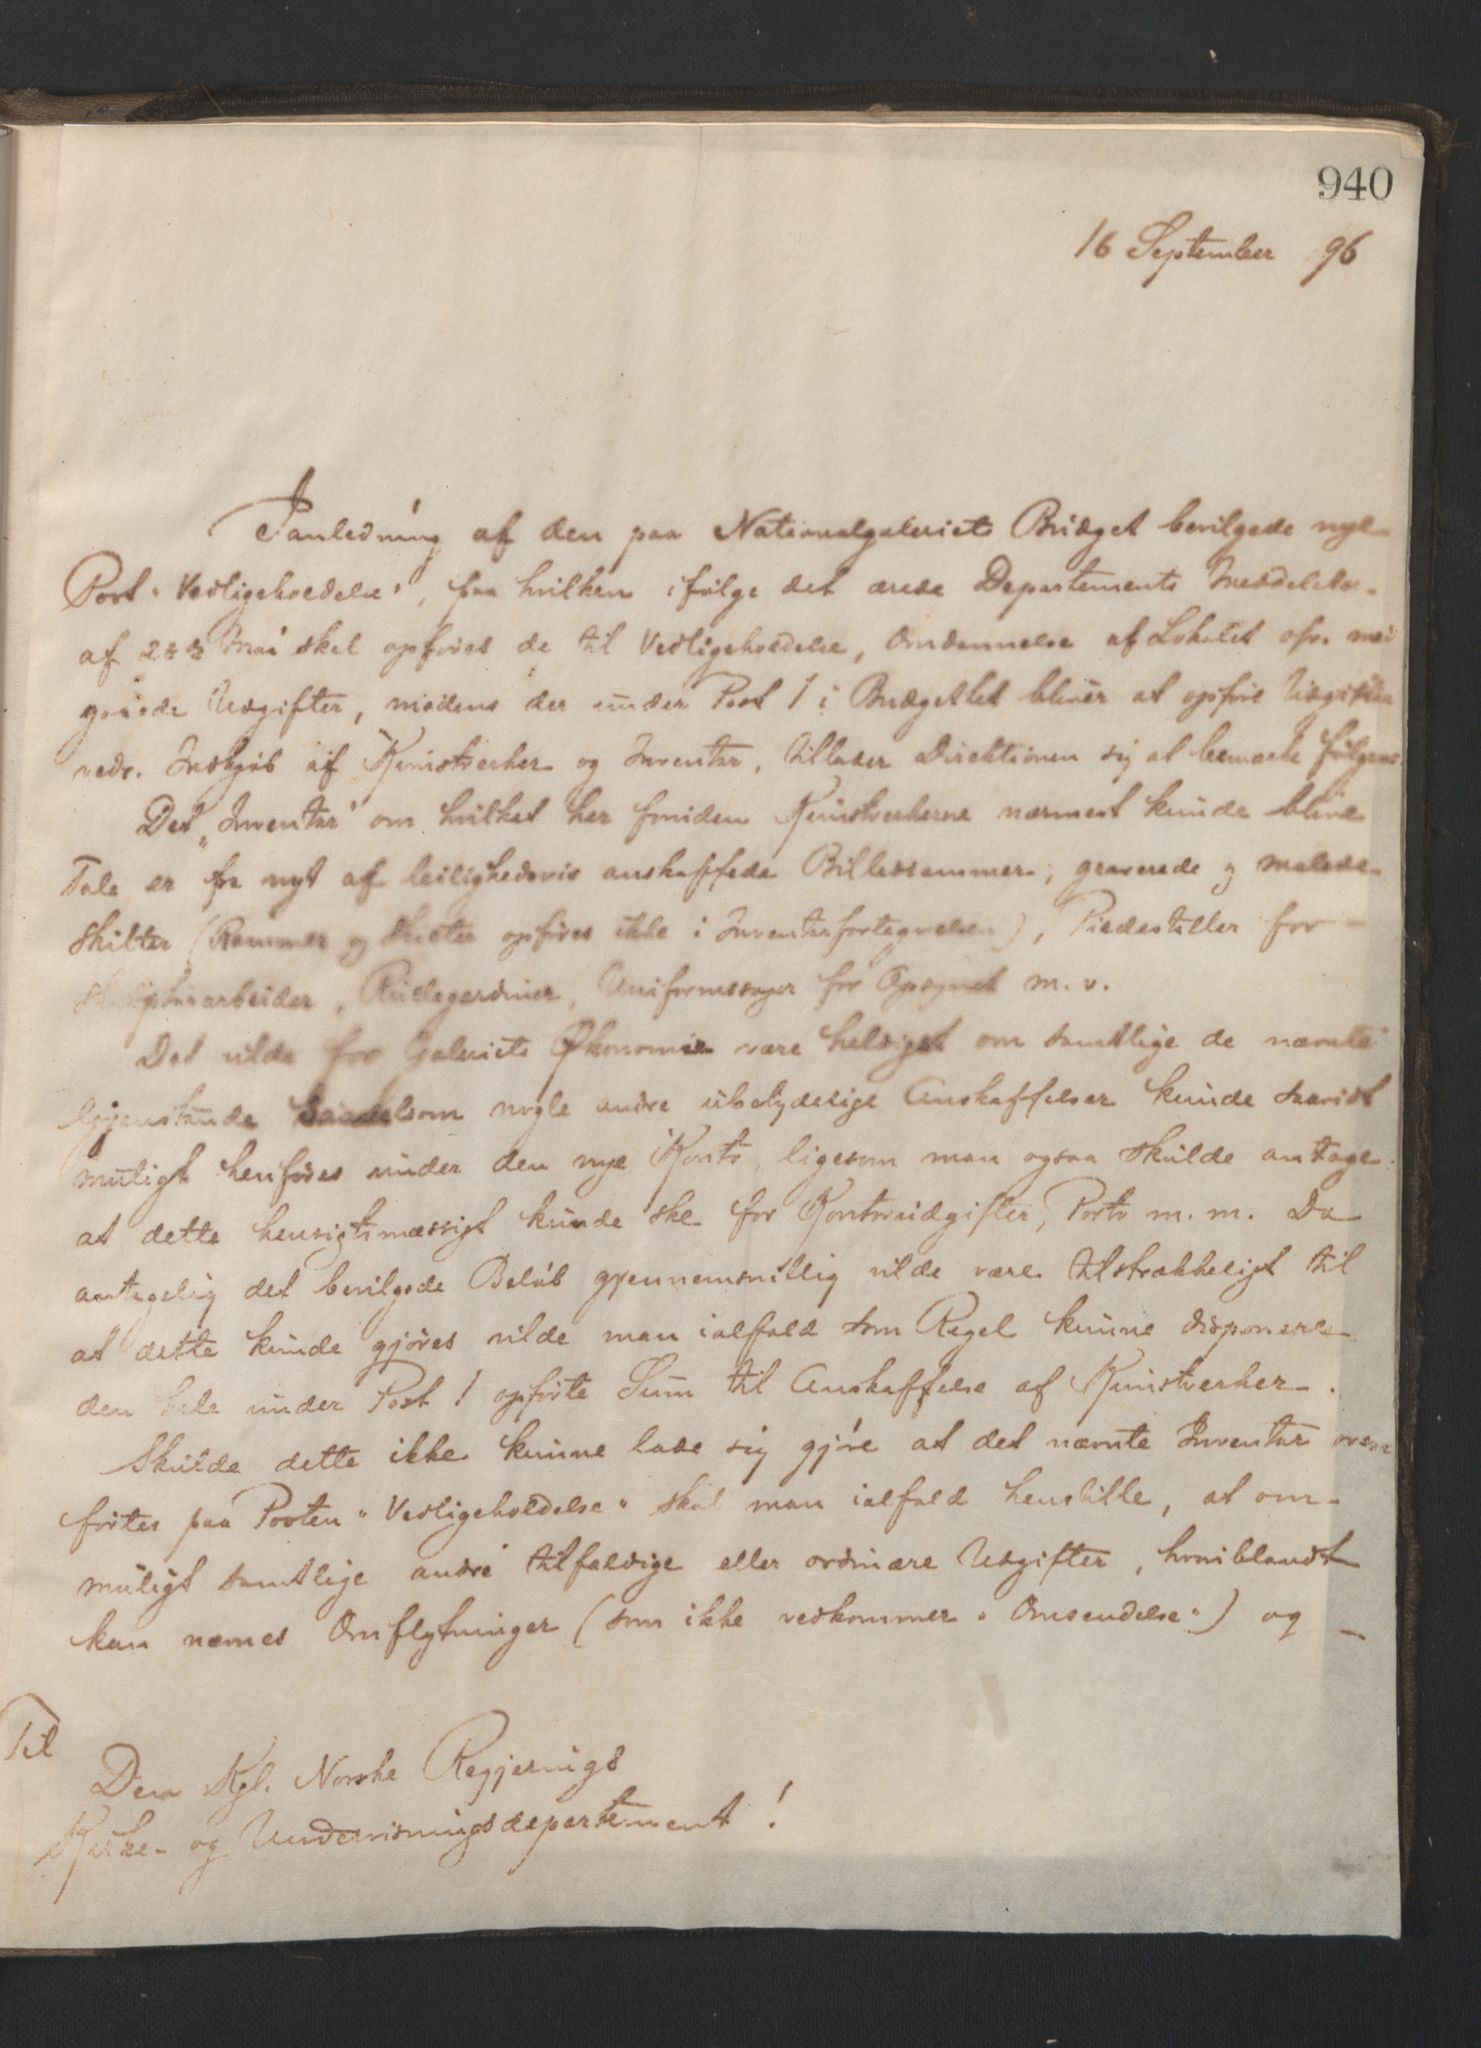 940
16 September 96
I anledning af den paa Nationalgaleriets Budget bevilgede nye
Post "Vedligeholdelse", paa hvilken ifølge det ærede Departements Meddelelse
af 28de Mai skal opføres de til Vedligeholdelse, Omdannelse af Lokalet osv. med
gaaede Udgifter, medens der under Post 1 i Budgettet bliver at opføre Udgifter
vedr. Indkjøb af Kunstverker og Inventar, tillader Direktionen sig at bemærke følgende
Det "Inventar" om hvilket her foruden Kunstverkerne nærmest kunde blive
Tale er fra nyt af leilighedsvis anskaffede Billedrammer, graverede og malede
skilter (Rammer og Skilter opføres ikke i Inventarfortegnelsen), Piedestaller for
Skulpturarbeider, Rullegardiner, Uniformssager for Opsynet m. v.
Det vilde for Galeriets Økonomie være heldigst om samtlige de nævnte
Gjenstande saavelsom nogle andre ubetydelige Anskaffelser kunde saavidt
muligt henføres under den nye Konto, ligesom man ogsaa skulde antage
at dette hensigtsmæssigt kunde ske for Kontorudgifter, Porto m. m. Da
antagelig det bevilgede Beløb gjennemsnitlig vilde være tilstrækkeligt til
at dette kunde gjøres vilde man ialfald som Regel kunne disponere
den hele under Post 1 opførte Sum til Anskaffelse af Kunstverker.
Skulde dette ikke kunne lade sig gjøre at det nævnte Inventar over
førtes paa Posten "Vedligeholdelse" skal man ialfald henstille, at om
muligt samtlige andre tilfældige eller ordinære Udgifter, hvoriblandt
kan nævnes Omflytninger (som ikke vedkommer "Omsendelse") og
Til
Den Kgl. Norske Regjerings
Kirke- og Undervisningsdepartement!